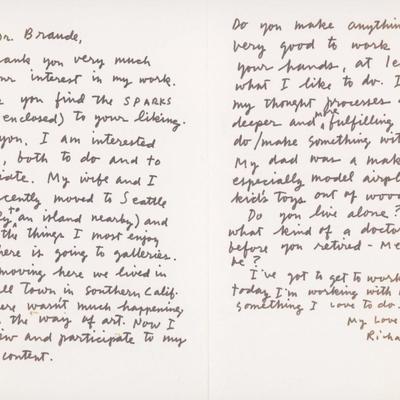 Dr. Braude,
hank you very much
our interest in my work.
you find the SPARKS
enclosed) to your liking.
you, I am interested
, both to do and to
iate. My wife and I
cently moved to Seattle
ly to an island nearby) and
the things I most enjoy
here is going to galleries.
moving here we lived in
ll Town in Southern Calif.
ere wasn't much happening
the way of art. Now I
ew and participate to my
content.
Do you make anythin
very good to work
your hands, at le
what I like to do. I
my thought processes
deeper and more fulfilling
do/make something wit
My dad was a mak
especially model airpl
kid's toys out of wood
Do you live alone?
what kind of a docto
before you retired - Me
?
I've got to get to work
today I'm working with
something I love to do.
My Love
Richa